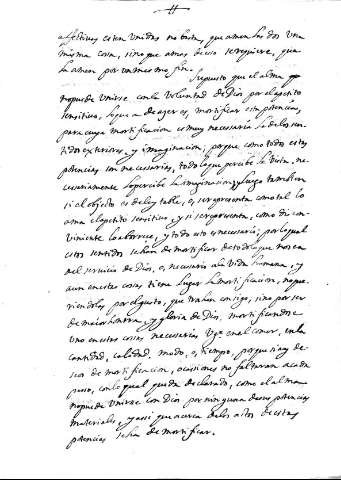 afectivas esten vnidas no basta, que amen las dos vna
misma cosa, sino que amas de eso se requiere, que
la amen por vn mesmo fin.
Supuesto que el alma no
puede vnirse con la voluntad de Dios por el apetito
sensitivo, lo que a de açer es, mortificar esta potencia,
para cuya mortificacion es muy necessaria la de los sen-
tidos exteriores, y imaginacion; porque como todas estas
potencias son necessarias, todo lo que percibe la vista, ne-
cesariamente lo percibe la imaginacion, y luego tambien
si el objeto es deleytable, o, se representa como tal lo
ama el apetito sensitivo, y si se representa, como discon-
viniente lo aborrece, y todo esto es necesario; por lo qual
estos sentidos se han de mortificar de todo lo que no sea
en el servicio de Dios, o, necesario a la vida humana, y
aun en estas cosas tiene lugar la mortificacion, no que-
riendolas por el gusto, que trahen consigo, sino por ser
de maior honrra, y gloria de Dios, mortificandose
vno en estas cosas necesarias, vg.ª en el comer, en la
cantidad, calidad, modo, o, tiempo, porque si ay de-
seos de mortificacion, ocasiones no faltaran a cada
paso, con lo qual queda declarado, como el alma
no puede vnirse con Dios por ninguna de sus potencias
materiales, y assi que acerca de los actos de estas
potencias se han de mortificar.